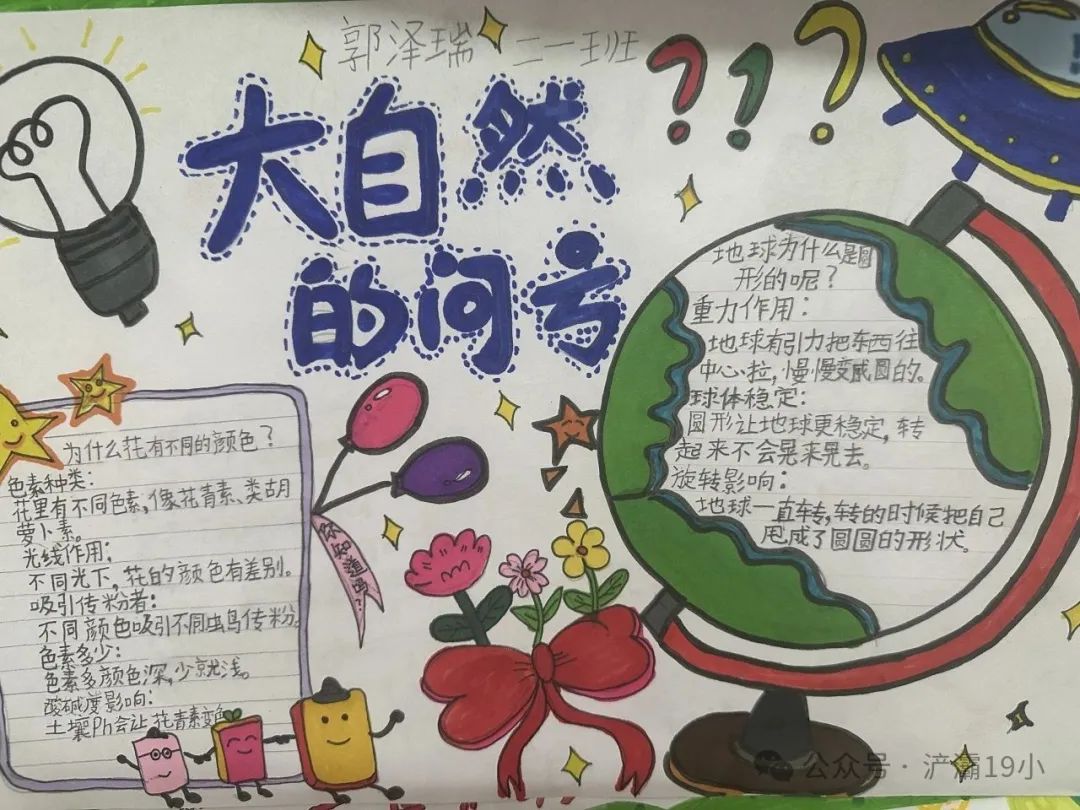 郭泽瑞 二一班
大自然
的问号
地球为什么是圆
形的呢？
重力作用：
地球有引力把东西往
中心拉，慢慢变成圆的。
球体稳定：
圆形让地球更稳定，转
起来不会晃来晃去。
旋转影响：
地球一直转，转的时候把自己
甩成了圆圆的形状。
为什么花有不同的颜色？
色素种类：
花里有不同色素，像花青素、类胡
萝卜素。
光线作用：
不同光下，花的颜色有差别。
吸引传粉者：
不同颜色吸引不同虫鸟传粉。
色素多少：
色素多颜色深，少就浅。
酸碱度影响：
土壤Ph会让花青素变色
你知道吗？
公众号·浐灞19小